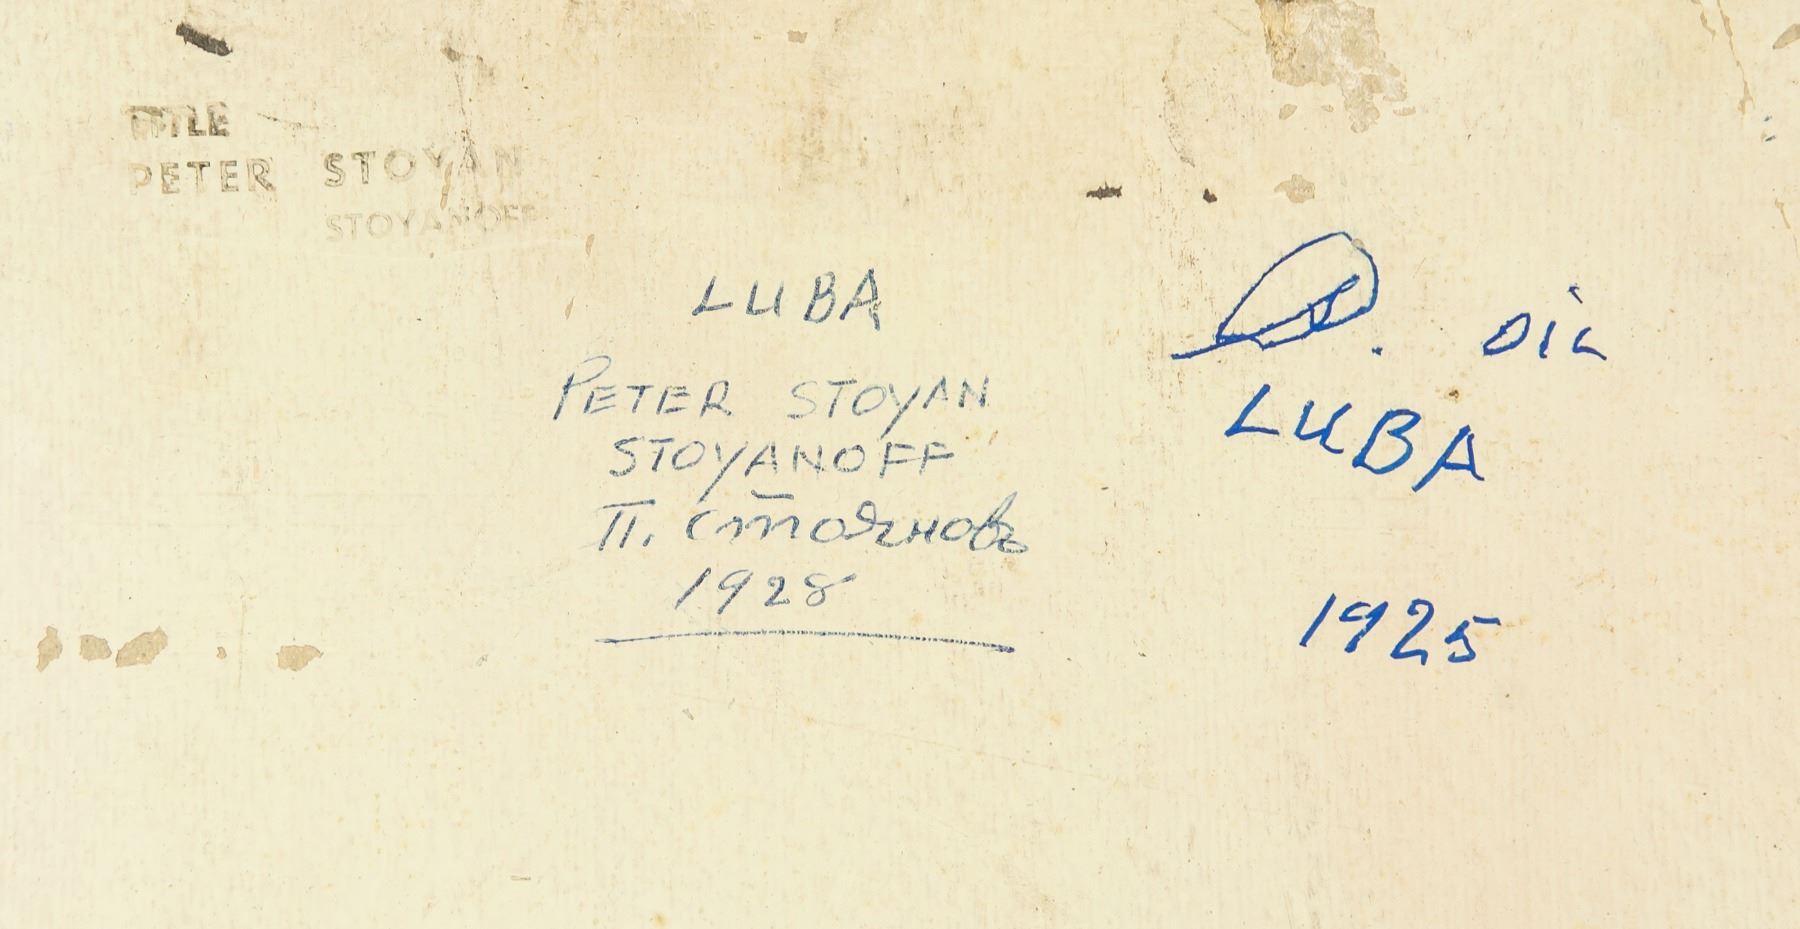 TITLE
PETER STOYAN
STOYANOFF
LUBA
PETER STOYAN
STOYANOFF
П. Стояновъ
1928
OIL
LUBA
1925